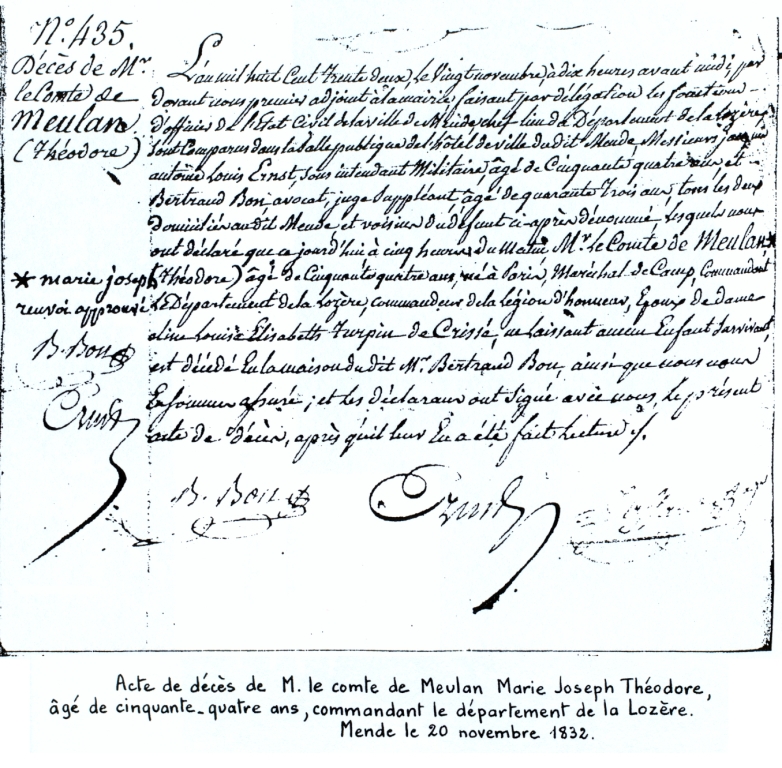 N.º 435.
Décès de M.r
le Comte de
Meulan
(Théodore)
L'an mil huit Cent Trente deux, le vingt novembre, à dix heures avant midi, par
devant nous premier adjoint à la mairie faisant par délégation les fonctions
d'officier de l'Etat Civil de la ville de Mende chef-lieu du Département de la Lozère
sont Comparus dans la salle publique de l'hôtel de ville du dit Mende Messieurs
antoine Louis Ernst, sous intendant Militaire, âgé de Cinquante quatre ans et
Bertrand Bon avocat, juge Suppléant, âgé de quarante Trois ans, tous les deux
Domiciliés au dit Mende et voisins du défunt ci-après dénommé, lesquels nous
ont déclaré que ce jourd'hui à cinq heures du matin M.r le Comte de Meulan *
(Théodore) âgé de Cinquante quatre ans, né à Paris, Maréchal de Camp, Commandant
le Département de la Lozère, commandeur de la légion d'honneur, Epoux de dame
aline Louise Elisabeth Turpin de Crissé, ne laissant aucun Enfant survivant
est décédé En la maison du dit M.r Bertrand Bon, ainsi que nous nous
En sommes assuré; et les déclarans ont signé avec nous, le présent
acte de décès, après qu'il leur En a été fait lecture ./.
* marie joseph
renvoi approuvé
B. Bon
Ernst
B. Bon
Ernst
Acte de décès de M. le comte de Meulan Marie Joseph Théodore,
âgé de cinquante-quatre ans, commandant le département de la Lozère.
Mende le 20 novembre 1832.